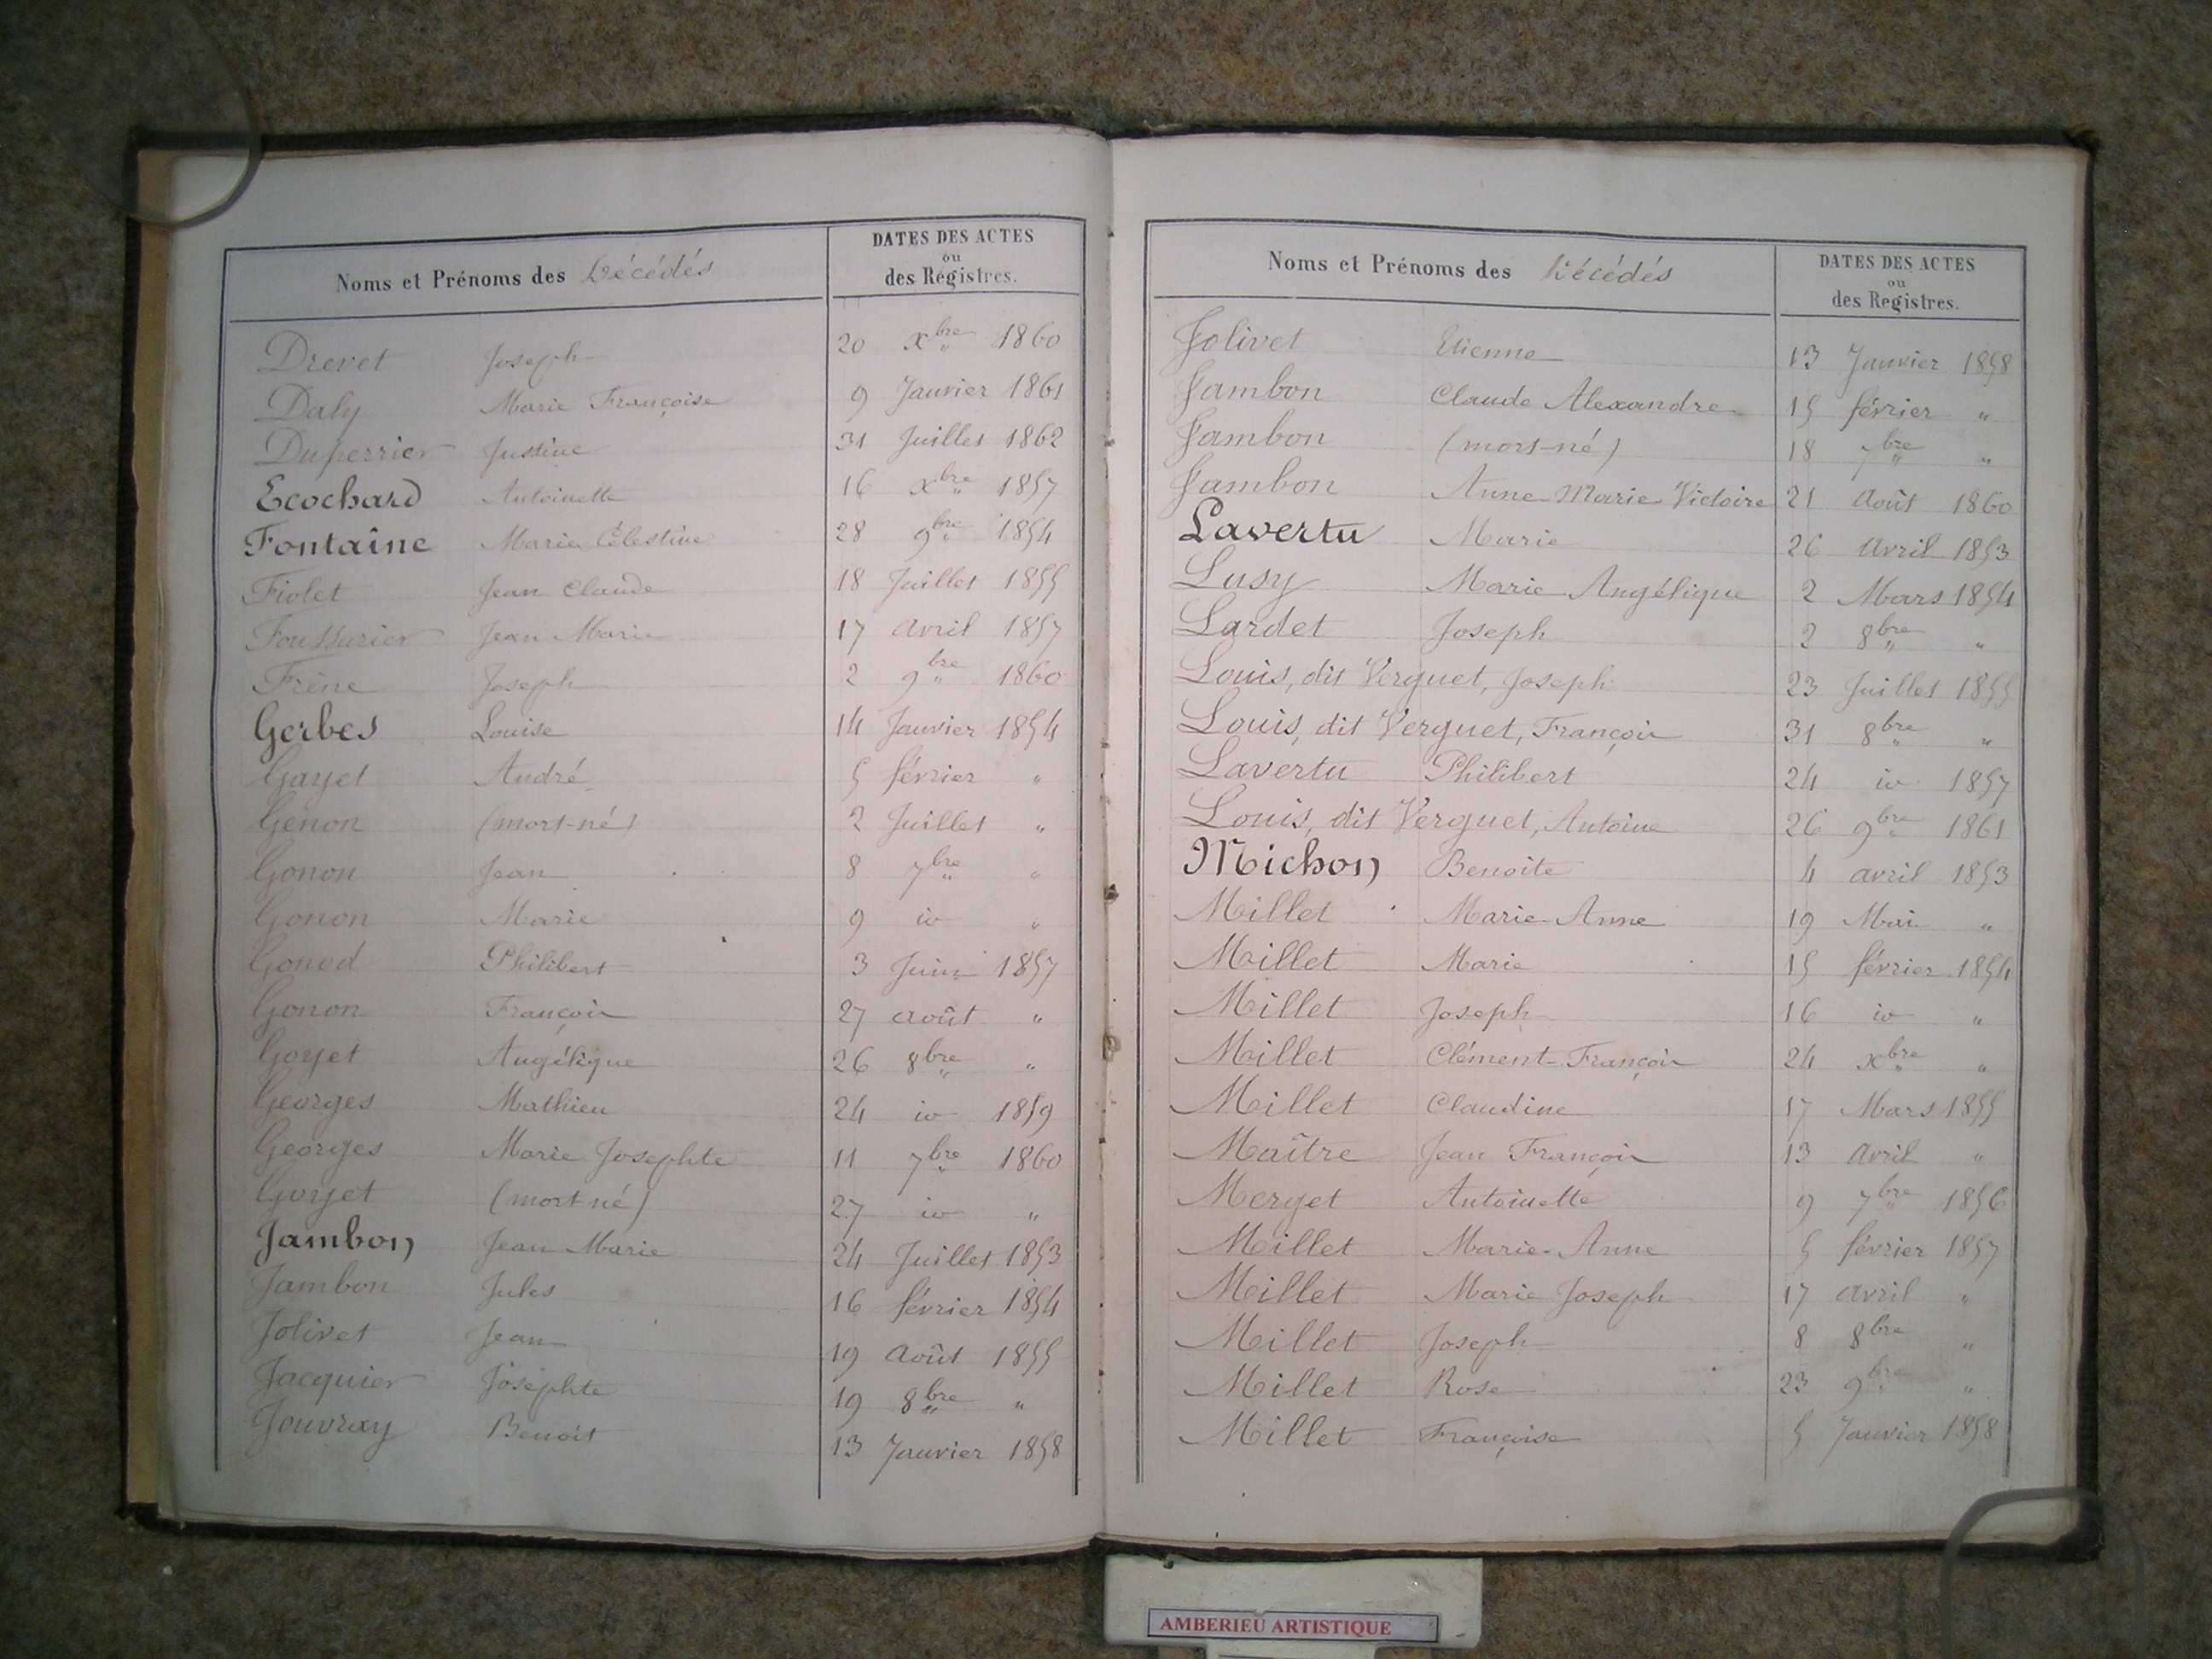 Noms et Prénoms des Décédés
DATES DES ACTES
ou
des Registres.
Drevet Joseph 20 Xbre 1860
Daly Marie Françoise 9 Janvier 1861
Duperrier Justine 31 Juillet 1862
Ecochard Antoinette 16 Xbre 1857
Fontaine Marie Célestine 28 9bre 1854
Fiolet Jean Claude 18 Juillet 1855
Foussarier Jean Marie 17 avril 1857
Frêne Joseph 2 9bre 1860
Gerbes Louise 14 Janvier 1854
Gayet André 5 février "
Genon (mort-né) 2 Juillet "
Gonon Jean 8 7bre "
Gonon Marie 9 id "
Gonod Philibert 3 Juin 1857
Gonon François 27 août "
Goyet Angélique 26 8bre "
Georges Mathieu 24 id 1859
Georges Marie Josephte 11 7bre 1860
Goyet (mort né) 27 id "
Jambon Jean Marie 24 Juillet 1853
Jambon Jules 16 février 1854
Jolivet Jean 19 Août 1855
Jacquier Josephte 19 8bre "
Jouvray Benoit 13 Janvier 1858
Noms et Prénoms des Décédés
DATES DES ACTES
ou
des Registres.
Jolivet Etienne 13 Janvier 1858
Jambon Claude Alexandre 15 février "
Jambon (mort-né) 18 7bre "
Jambon Anne Marie Victoire 21 Août 1860
Lavertu Marie 26 avril 1853
Lusy Marie Angélique 2 Mars 1854
Lardet Joseph 2 8bre "
Louis, dit Verguet, Joseph 23 Juillet 1855
Louis, dit Verguet, François 31 8bre "
Lavertu Philibert 24 id 1857
Louis, dit Verguet, Antoine 26 9bre 1861
Michon Benoite 4 avril 1853
Millet Marie-Anne 19 Mai "
Millet Marie 15 février 1854
Millet Joseph 16 id "
Millet Clément-François 24 Xbre "
Millet Claudine 17 Mars 1855
Maître Jean François 13 Avril "
Merget Antoinette 9 7bre 1856
Millet Marie-Anne 5 février 1857
Millet Marie Joseph 17 avril "
Millet Joseph 8 8bre "
Millet Rose 23 9bre "
Millet Françoise 5 Janvier 1858
AMBERIEU ARTISTIQUE